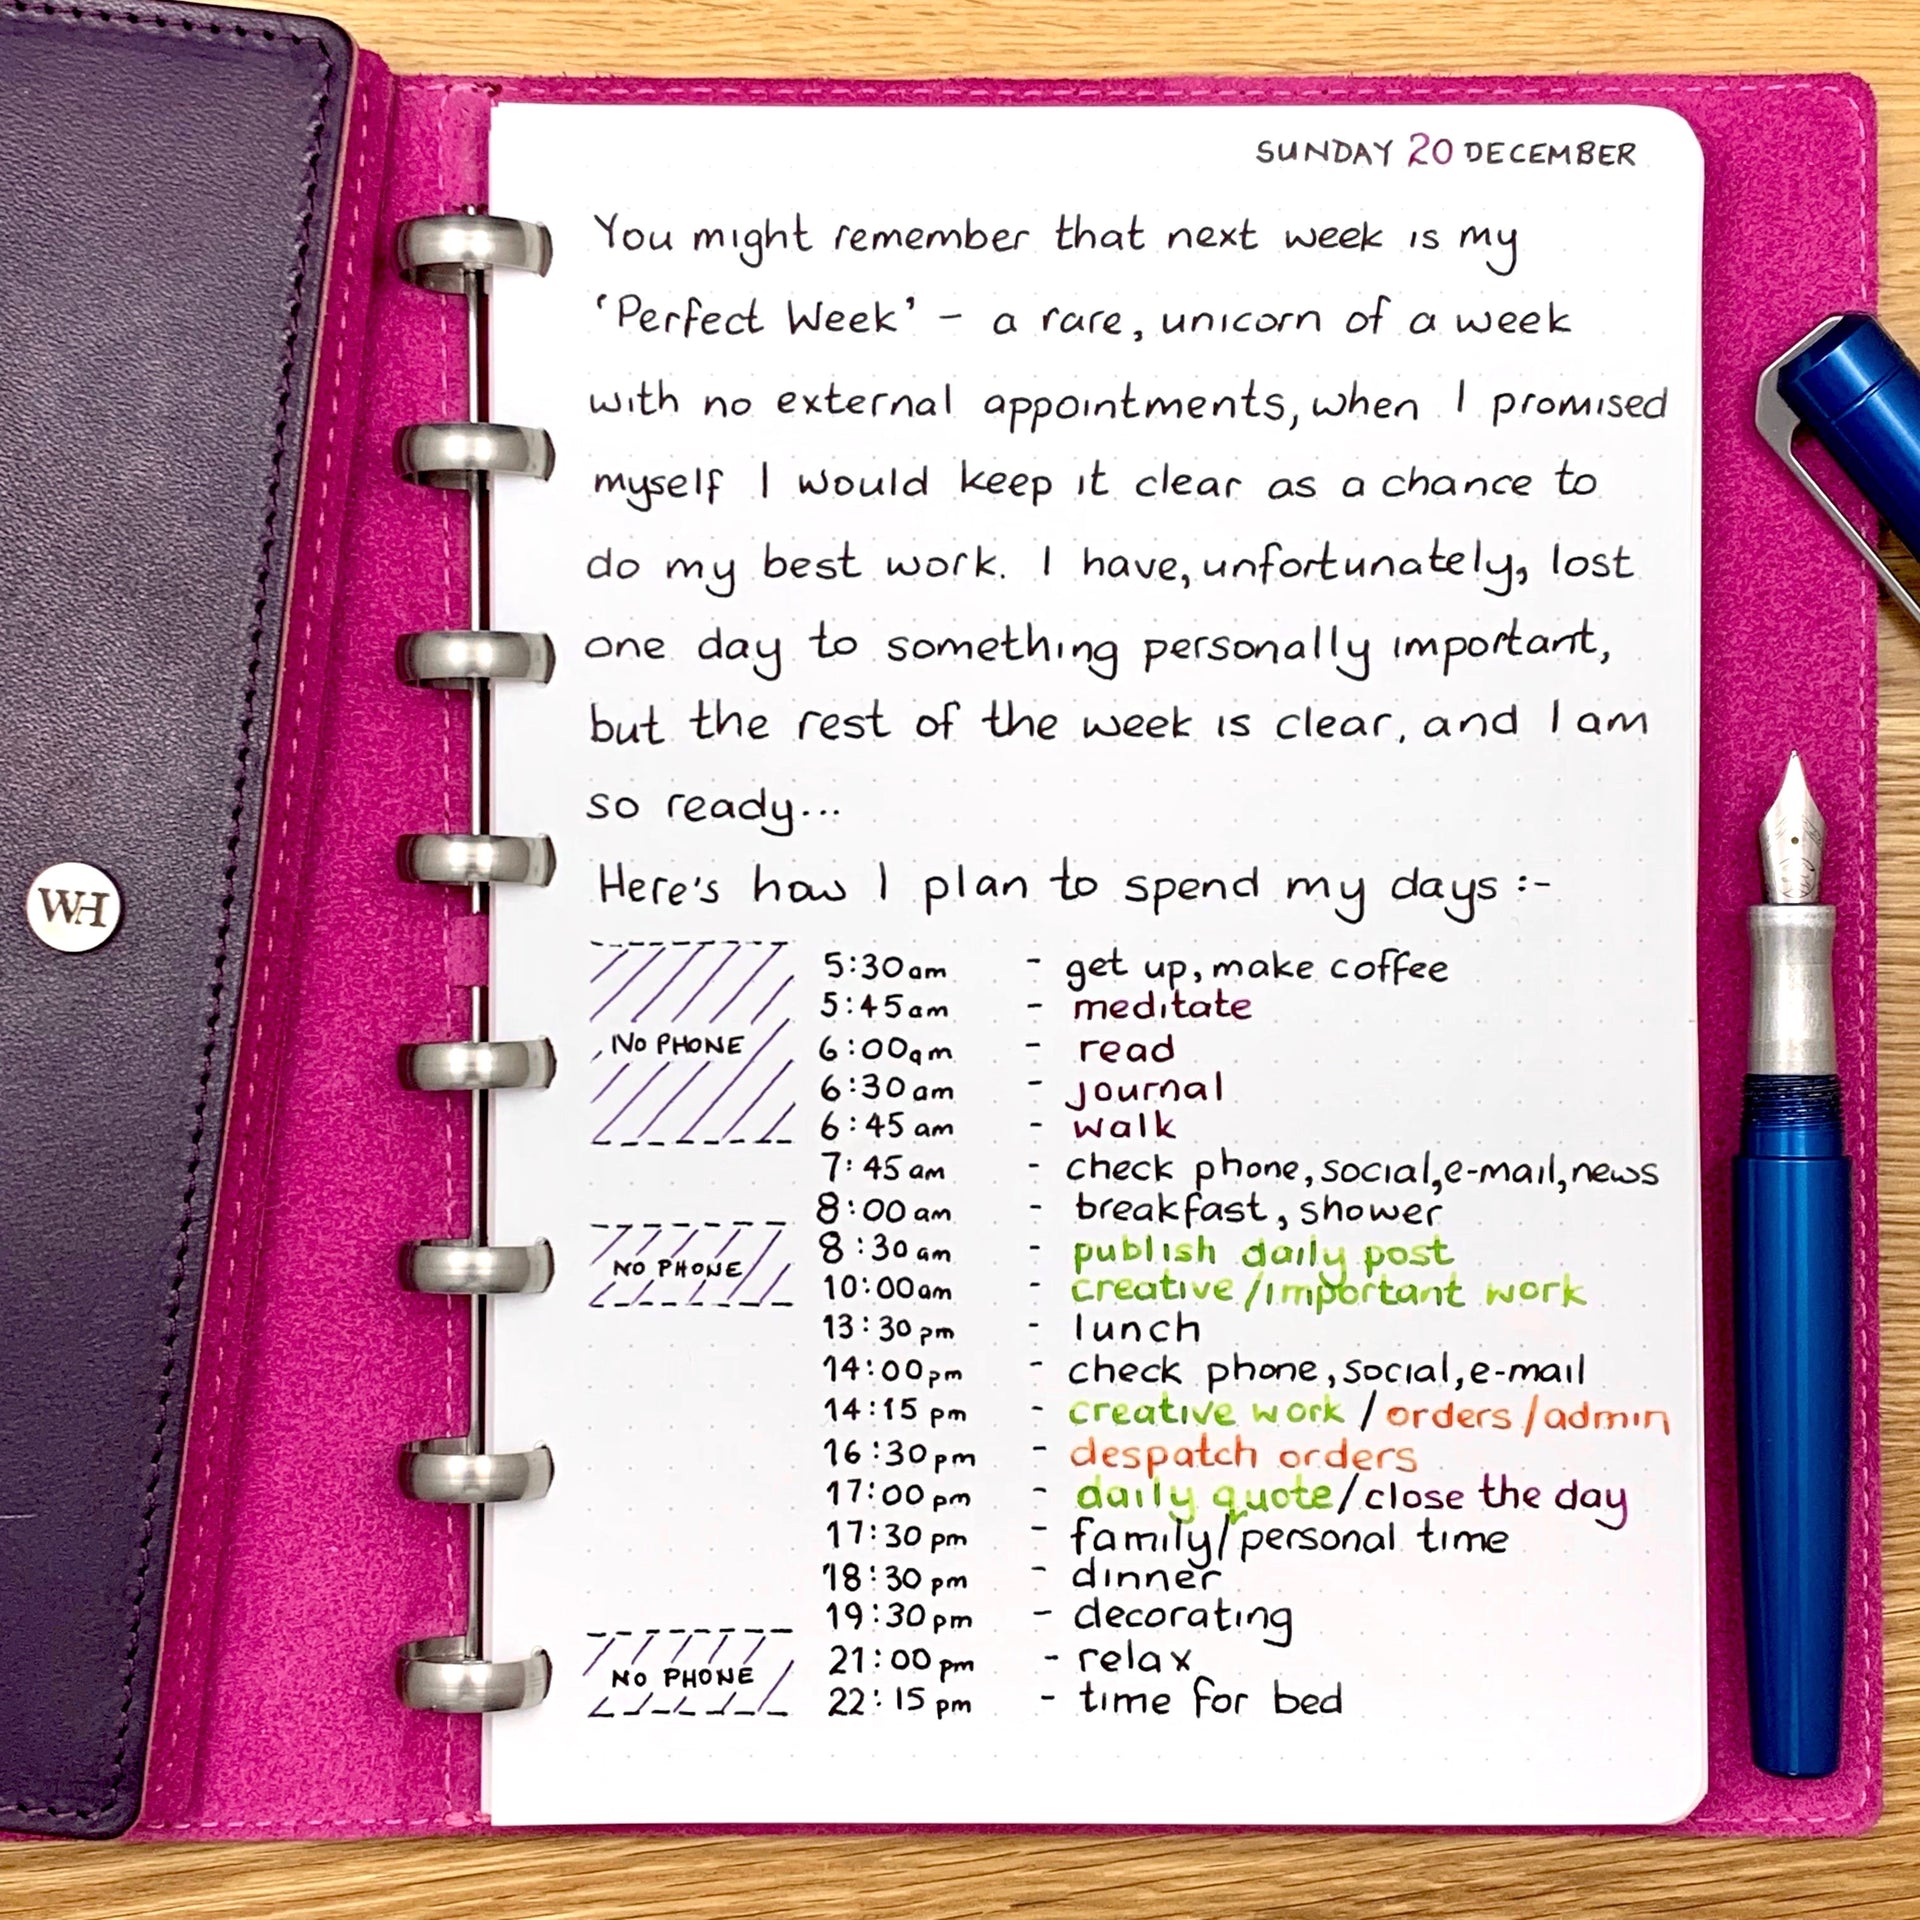 SUNDAY 20 DECEMBER
You might remember that next week is my
'Perfect Week' - a rare, unicorn of a week
with no external appointments, when I promised
myself I would keep it clear as a chance to
do my best work. I have, unfortunately, lost
one day to something personally important,
but the rest of the week is clear, and I am
so ready...
Here's how I plan to spend my days :-
5:30am - get up, make coffee
5:45am - meditate
NO PHONE 6:00am - read
6:30am - journal
6:45am - walk
7:45am - check phone, social, e-mail, news
8:00am - breakfast, shower
8:30am - publish daily post
NO PHONE 10:00am - creative/important work
13:30pm - lunch
14:00pm - check phone, social, e-mail
14:15pm - creative work / orders / admin
16:30pm - despatch orders
17:00pm - daily quote/close the day
17:30pm - family/personal time
18:30pm - dinner
19:30pm - decorating
21:00pm - relax
NO PHONE 22:15pm - time for bed
WH